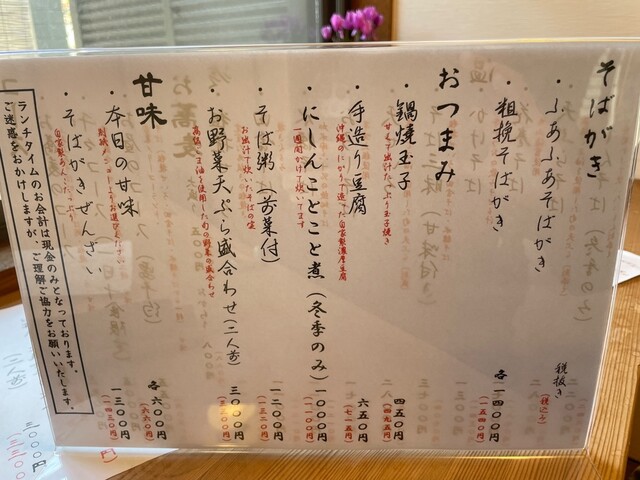 そばがき
・ふあふあそばがき
・粗挽そばがき
税抜き
(税込み)
各一四〇〇円
(一五四〇円)
おつまみ
・鍋焼玉子
甘くして出汁たっぷり玉子焼き
四五〇円
(四九五円)
・手造り豆腐
沖縄のにがりで造った自家製濃厚豆腐
六五〇円
(七一五円)
・にしんことこと煮(冬季のみ)
一週間かけて炊いてます
一〇〇〇円
(一一〇〇円)
・そば粥(お菜付)
お出汁で炊いたそばの実
一二〇〇円
(一三二〇円)
・お野菜天ぷら盛合わせ(二人前)
高級ごま油を使用した旬の野菜の盛合わせ
三〇〇〇円
(三三〇〇円)
甘味
・本日の甘味
別紙メニューよりお選びください
各六〇〇円
(六六〇円)
・そばがきぜんざい
自家製あんこたっぷり
一三〇〇円
(一四三〇円)
ランチタイムのお会計は現金のみとなっております。
ご迷惑をおかけしますが、ご理解ご協力をお願いいたします。
(二人前)
三〇〇〇円
(三三〇〇
円)